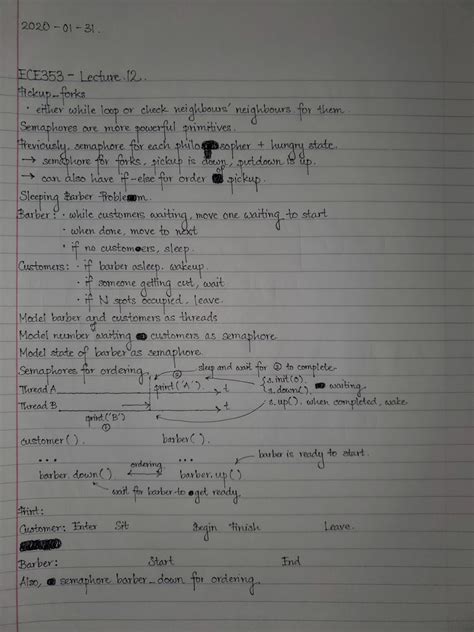 2020-01-31.
ECE353 - Lecture 12.
Pickup_forks
· either while loop or check neighbours' neighbours for them.
Semaphores are more powerful primitives.
Previously, semaphore for each philosopher + hungry state.
→ semaphore for forks, pickup is down, putdown is up.
→ can also have if-else for order of pickup.
Sleeping Barber Problem.
Barber: · while customers waiting, move one waiting to start
· when done, move to next
· if no customers, sleep.
Customers: · if barber asleep, wakeup.
· if someone getting cut, wait
· if N spots occupied, leave.
Model barber and customers as threads
Model number waiting customers as semaphore.
Model state of barber as semaphore.
Semaphores for ordering. ② sleep and wait for ① to complete.
Thread A print('A'). t { s.init(0). s.down() waiting.
Thread B t · s.up(). when completed, wake
print('B')
①
customer(). barber().
... ... barber is ready to start.
barber.down() ordering barber.up()
wait for barber to get ready.
Print:
Customer: Enter Sit Begin Finish Leave.
Barber: Start End
Also, semaphore barber_down for ordering.